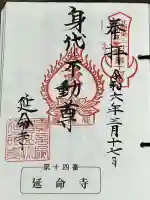 奉拝
令和六年三月十七日
身代不動尊
延命寺
第十四番
延命寺